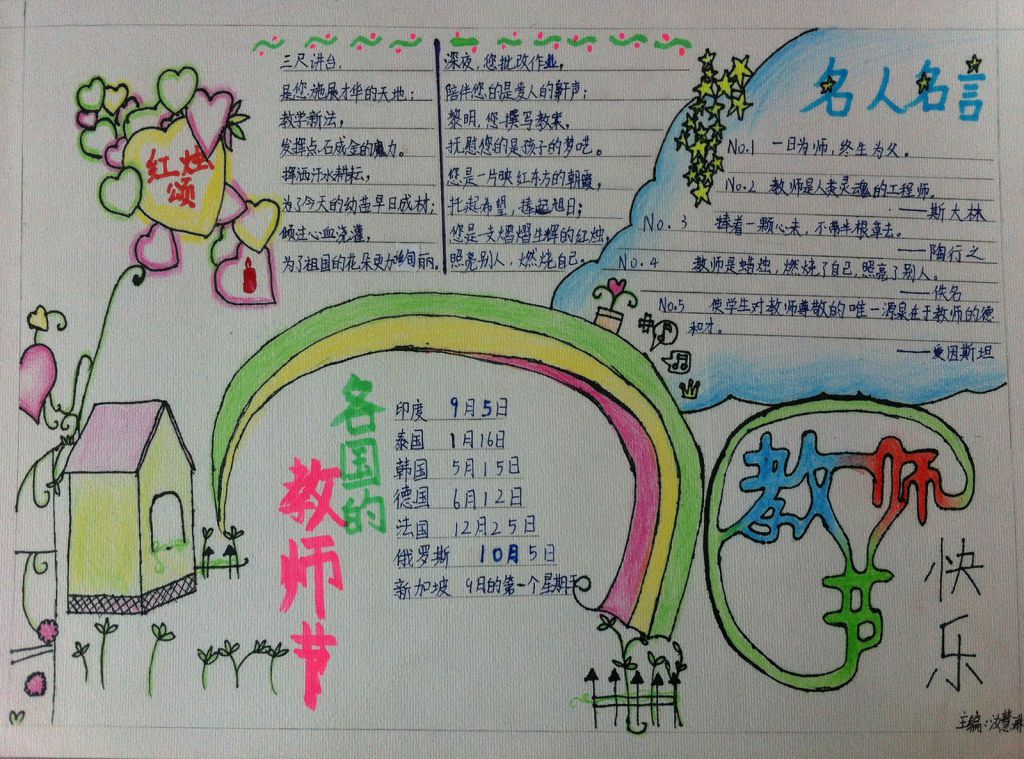 红烛
颂
三尺讲台,
是您施展才华的天地;
教学新法,
发挥点石成金的魔力。
挥洒汗水耕耘,
为了今天的幼苗早日成材;
倾注心血浇灌,
为了祖国的花朵更加绚丽。
深夜,您批改作业,
陪伴您的是爱人的鼾声;
黎明,您撰写教案,
抚慰您的是孩子的梦呓。
您是一片映红东方的朝霞,
托起希望,捧起旭日;
您是一支熠熠生辉的红烛,
照亮别人,燃烧自己。
名人名言
No.1 一日为师,终生为父。
No.2 教师是人类灵魂的工程师。
——斯大林
No.3 捧着一颗心来,不带半根草去。
——陶行之
No.4 教师是蜡烛,燃烧了自己,照亮了别人。
——佚名
No.5 使学生对教师尊敬的唯一源泉在于教师的德
和才。
——爱因斯坦
各国的
教师节
印度 9月5日
泰国 1月16日
韩国 5月15日
德国 6月12日
法国 12月25日
俄罗斯 10月5日
新加坡 9月的第一个星期五
教师节
快乐
主编:汝慧